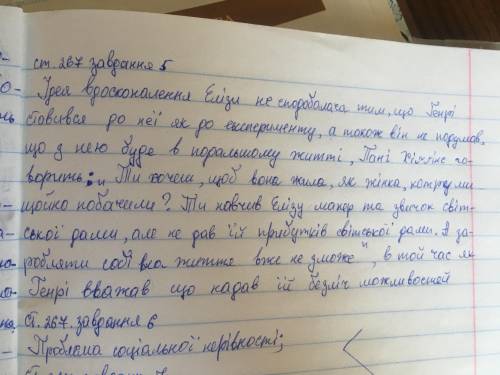 ст. 267 завдання 5
Ідея вдосконалення Елізи не сподобалася тим, що Генрі
ставився до неї як до експерименту, а також він не подумав,
що з нею буде в подальшому житті, Пані Хіггінс го-
ворить: "Ти хочеш, щоб вона жила, як жінка, котру ми
щойно побачили? Ти навчив Елізу манер та звичок світ-
ської дами, але не дав їй прибутків світської дами. А за-
робляти собі на життя вже не зможе", в той час як
Генрі вважав що надав їй безліч можливостей
Ст. 267. завдання 6
- Проблема соціальної нерівності;